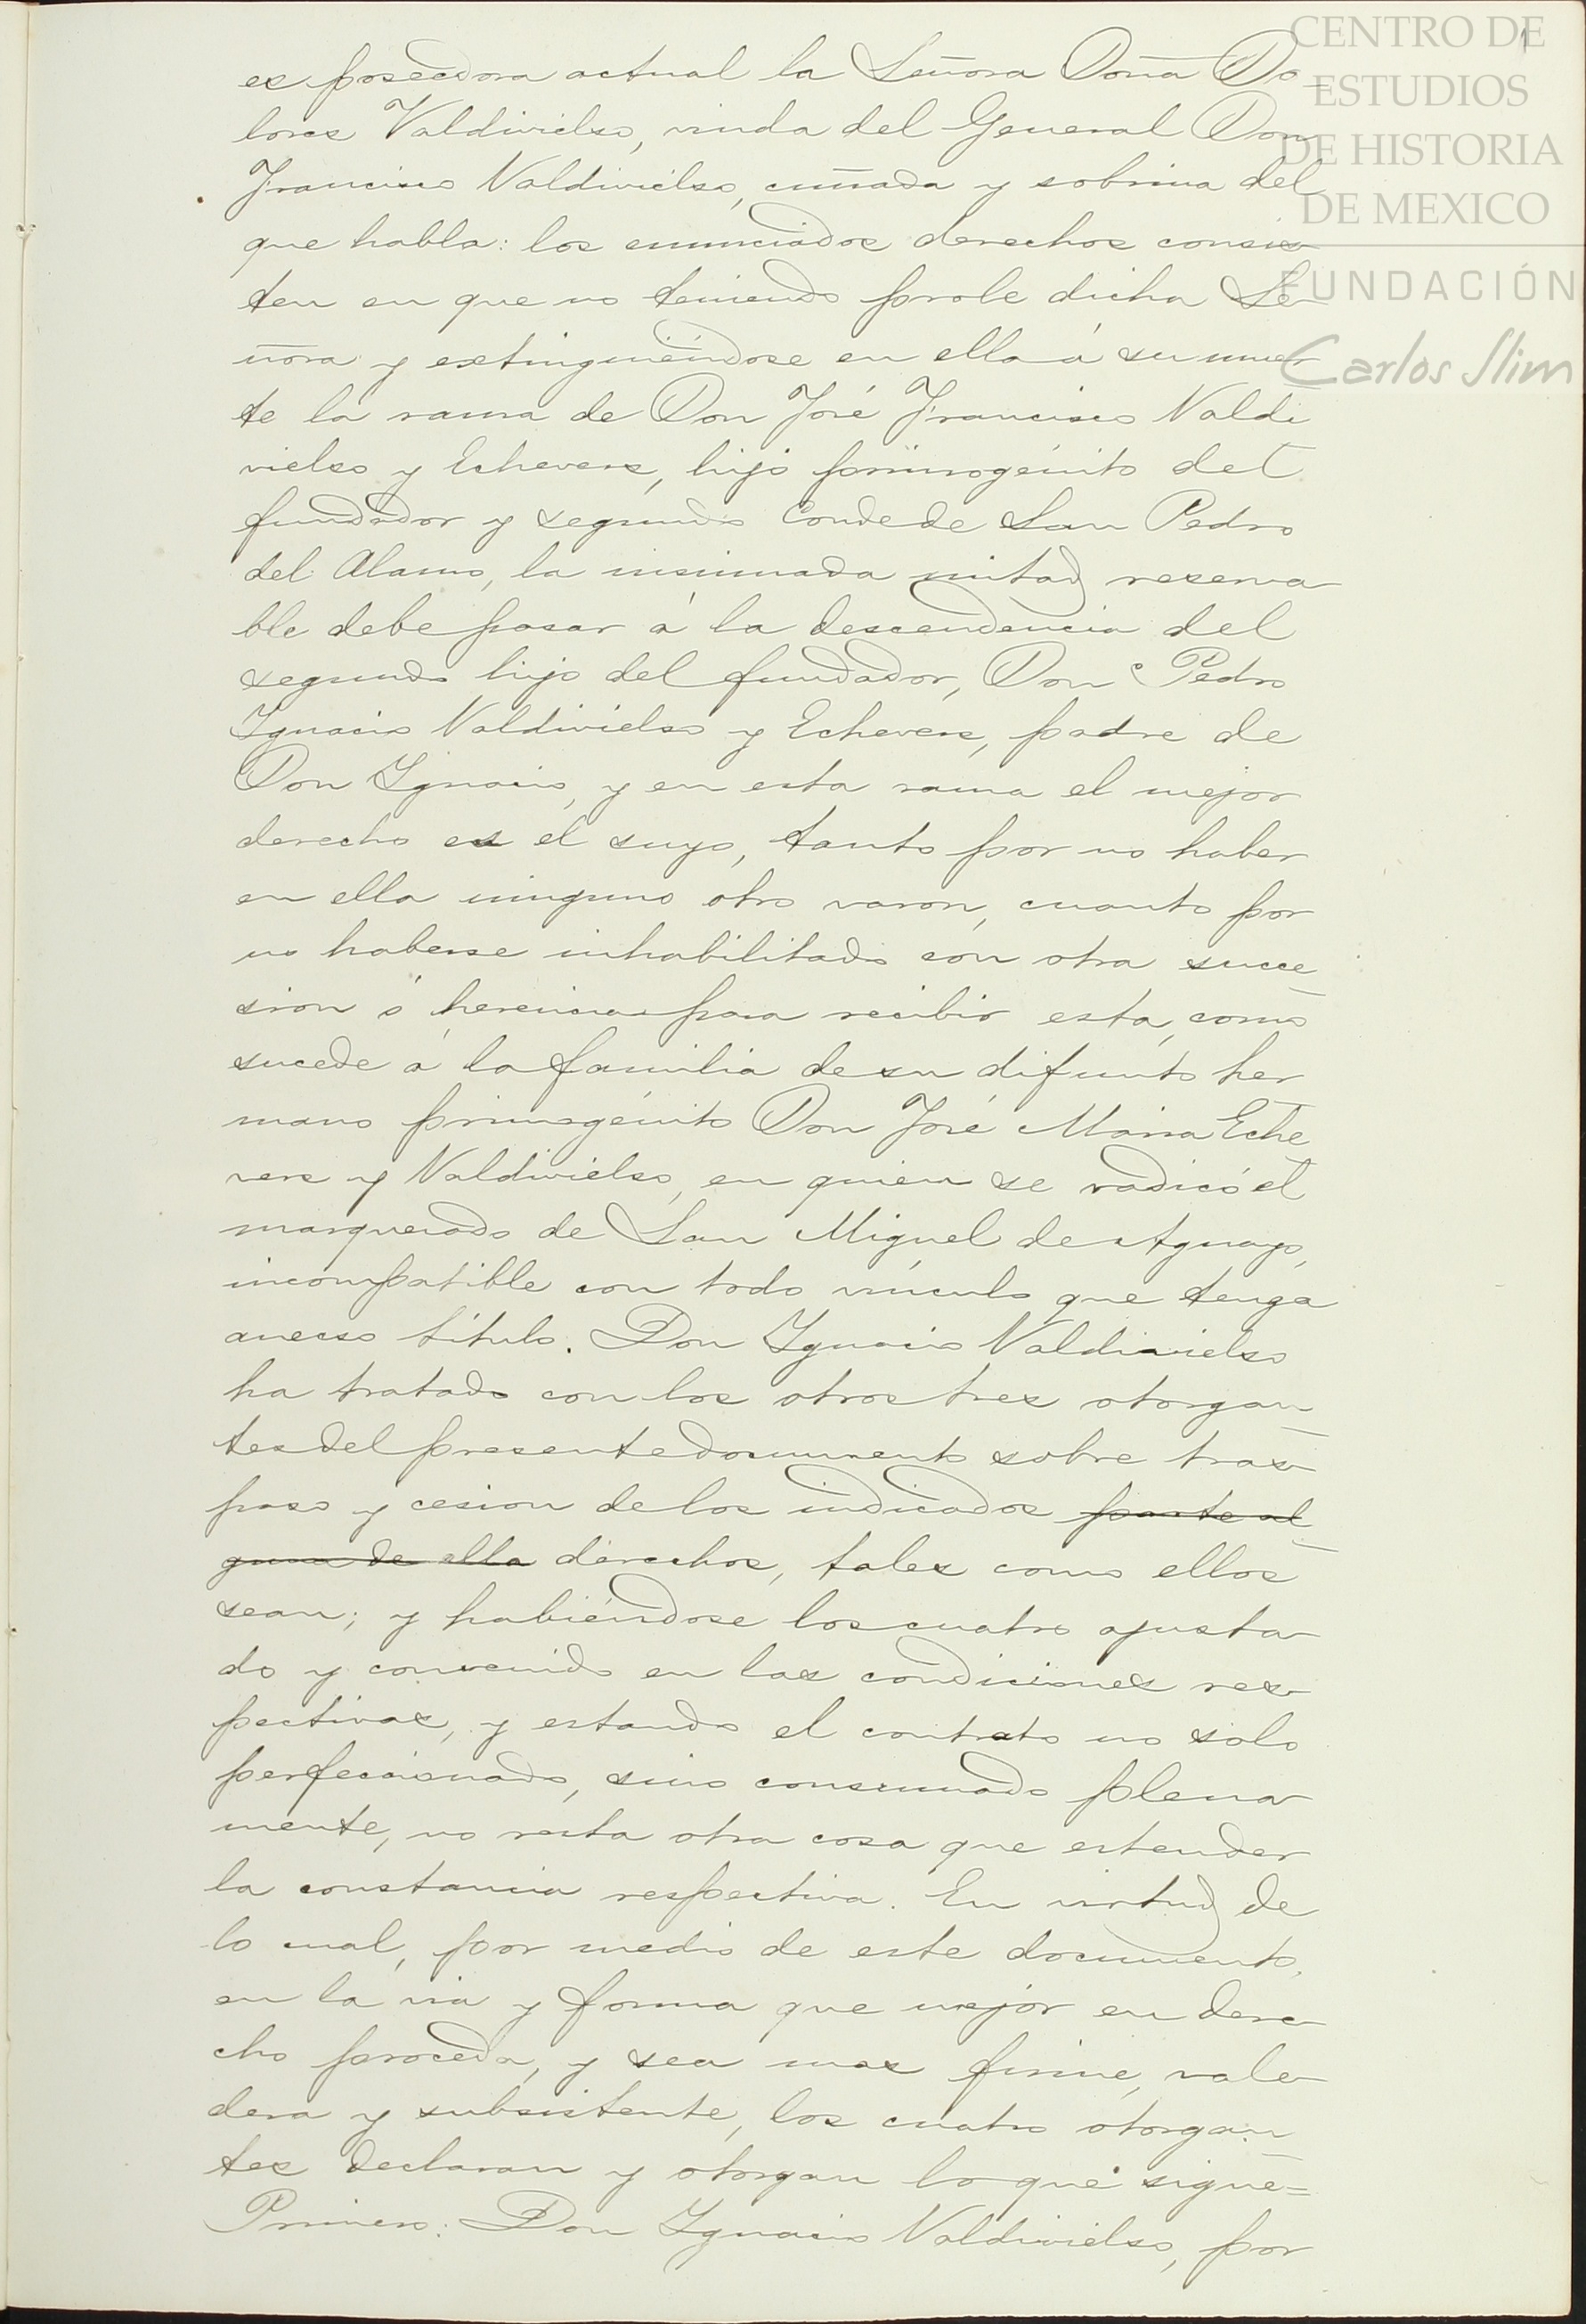 CENTRO DE
ESTUDIOS
DE HISTORIA
DE MEXICO
FUNDACIÓN
Carlos Slim
es poseedora actual la Señora Doña Do-
lores Valdivielso, viuda del General Don
Francisco Valdivielso, cuñada y sobrina del
que habla: los enunciados derechos consis-
ten en que no teniendo prole dicha Se-
ñora y extinguiéndose en ella á su muer-
te la rama de Don José Francisco Valdi
vielso y Echevers, hijo primogénito del
fundador y segundo Conde de San Pedro
del Alamo, la insinuada mitad reserva
ble debe pasar á la descendencia del
segundo hijo del fundador, Don Pedro
Ygnacio Valdivielso y Echevers, padre de
Don Ygnacio, y en esta rama el mejor
derecho es el suyo, tanto por no haber
en ella ninguno otro varon, cuanto por
no haberse inhabilitado con otra succe-
sion ó herencia para recibir esta, como
sucede á la familia de su difunto her
mano primogénito Don José Maria Eche
vers y Valdivielso, en quien se radicó el
marquesado de San Miguel de Aguayo,
incompatible con todo vínculo que tenga
anecso título. Don Ygnacio Valdivielso
ha tratado con los otros tres otorgan-
tes del presente documento sobre tras-
paso y cesion de los indicados parte al-
guna de ella derechos, tales como ellos
sean; y habiéndose los cuatro ajusta-
do y convenido en las condiciones res-
pectivas, y estando el contrato no solo
perfeccionado, sino consumado plena-
mente, no resta otra cosa que estender
la constancia respectiva. En virtud de
lo cual, por medio de este documento,
en la via y forma que mejor en dere-
cho proceda, y sea mas firme, vale-
dera y subsistente, los cuatro otorgan-
tes declaran y otorgan lo que sigue=
Primero: Don Ygnacio Valdivielso, por